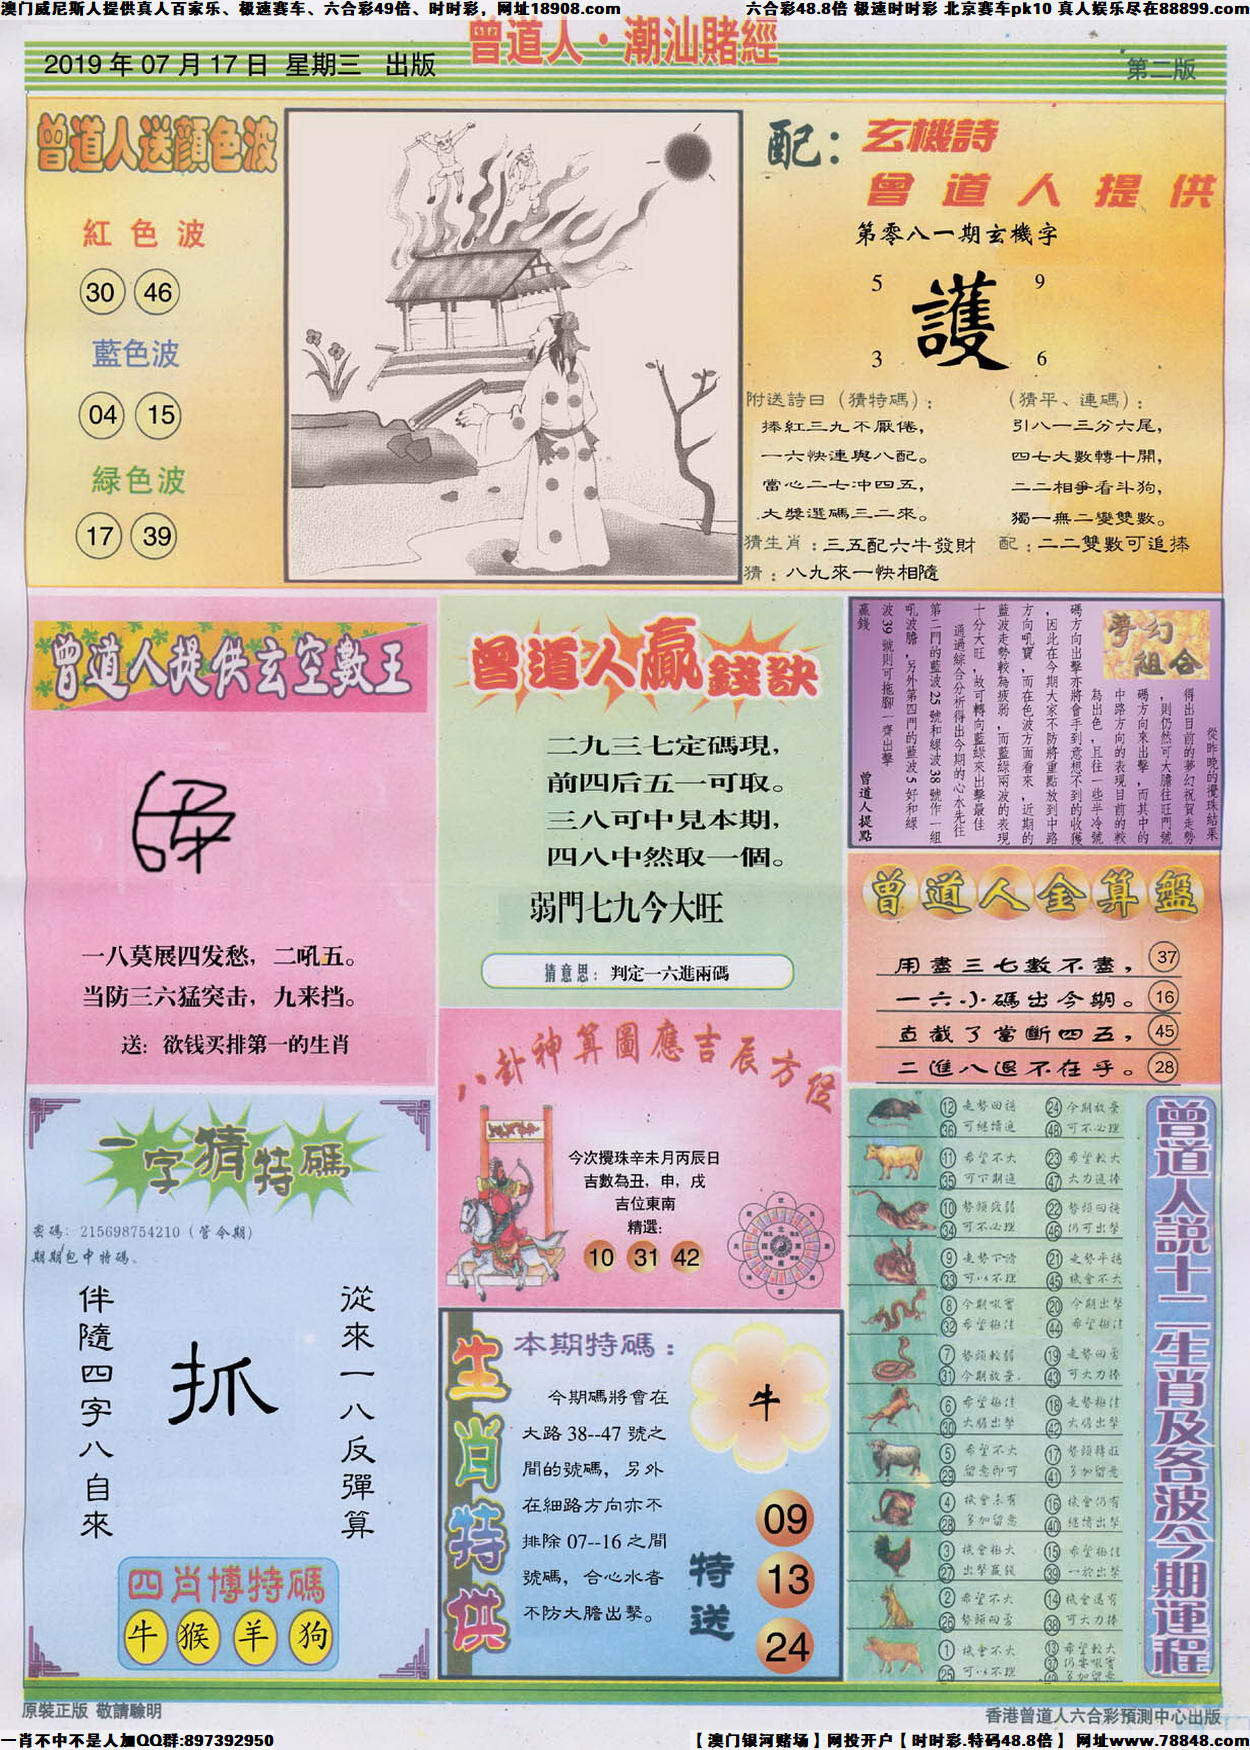 澳门威尼斯人提供真人百家乐、极速赛车、六合彩49倍、时时彩，网址18908.com
六合彩48.8倍 极速时时彩 北京赛车pk10 真人娱乐尽在88899.com
曾道人·潮汕賭經
2019 年 07 月 17 日 星期三 出版
第二版
曾道人送顏色波
紅色波
30 46
藍色波
04 15
緑色波
17 39
配：玄機詩
曾道人提供
第零八一期玄機字
5 9
護
3 6
附送詩曰（猜特碼）：
捧紅三九不厭倦，
一六快連與八配。
當心二七冲四五，
大獎選碼三二來。
（猜平、連碼）：
引八一三分六尾，
四七大數轉十開，
二二相爭看斗狗，
獨一無二變雙數。
猜生肖：三五配六牛發財
配：二二雙數可追捧
猜：八九來一快相隨
曾道人提供玄空數王
一八莫展四发愁，二吼五。
当防三六猛突击，九来挡。
送：欲钱买排第一的生肖
曾道人贏錢訣
二九三七定碼現，
前四后五一可取。
三八可中見本期，
四八中然取一個。
弱門七九今大旺
猜意思：判定一六進兩碼
夢幻組合
從昨晚的攪珠結果
得出目前的夢幻祝賀走勢
，則仍然可大膽往旺門號
碼方向來出擊，而其中的
中路方向的表現目前的較
為出色，且往一些半冷號
碼方向出擊亦將會手到意想不到的收獲
，因此在今期大家不防將重點放到中路
方向吼寶，而在色波方面看來，近期的
藍波走勢較為疲弱，而藍綠兩波的表現
十分大旺，故可轉向藍綠來出擊最佳
通過綜合分析得出今期的心水先往
第二門的藍波25號和綠波38號作一組
吼波膽，另外第四門的藍波5好和綠
波39號則可拖腳一齊出擊
贏錢
曾道人提點
曾道人金算盤
用盡三七數不盡，37
一六小碼出今期。16
直截了當斷四五，45
二進八退不在乎。28
一字猜特碼
密碼：215698754210（管今期）
期期包中特碼。
從來一八反彈算
抓
伴隨四字八自來
四肖博特碼
牛 猴 羊 狗
八卦神算圖應吉辰方位
今次攪珠辛未月丙辰日
吉數為丑，申，戌
吉位東南
精選：
10 31 42
生肖特供
本期特碼：
今期碼將會在
大路 38--47 號之
間的號碼，另外
在細路方向亦不
排除 07--16 之間
號碼，合心水者
不防大膽出擊。
牛
特送
09
13
24
曾道人説十二生肖及各波今期運程
12 走勢回穩 24 今期放棄
36 可繼續追 48 可不必理
11 希望不大 23 希望較大
35 可下期追 47 大力追捧
10 勢頭疲弱 22 勢頭回穩
34 可不必理 46 仍可出擊
9 走勢下滑 21 走勢平穩
33 可以不理 45 機會不大
8 今期吼實 20 今期出擊
32 希望極佳 44 希望極佳
7 勢頭較弱 19 走勢回落
31 今期放棄. 43 可大力捧
6 希望極佳 18 走勢極佳
30 大膽出擊 42 大膽出擊
5 希望不大 17 勢頭轉旺
29 留意即可 41 多加留意
4 機會未有 16 機會仍有
28 多加留意 40 繼續出擊
3 機會極大 15 希望極佳
27 出擊贏錢 39 一於出擊
2 希望不大 14 機會還有
26 勢頭回落 38 可大力捧
1 機會不大 13 希望較大
25 可以不理 37 仍要吼實
49 多加留意
原裝正版 敬請驗明
香港曾道人六合彩預測中心出版
一肖不中不是人加QQ群:897392950
【澳门银河赌场】网投开户【时时彩.特码48.8倍】 网址www.78848.com